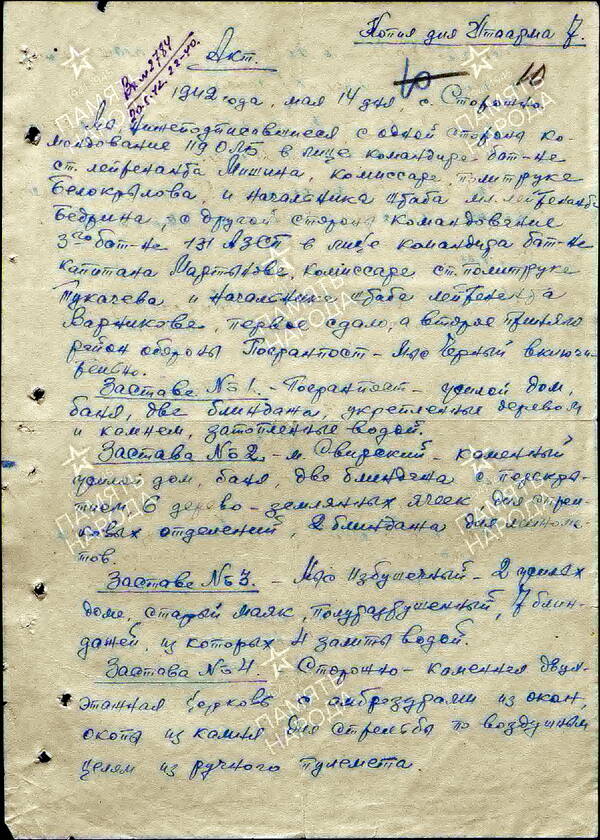 Копия для Штаарма 7.
Вх. № 2784
20.5.42. 22-40.
Акт.
10 10
1942 года, мая 14 дня, с. Сторожно.
Мы, нижеподписавшиеся с одной стороны ко-
мондование ОЛБ в лице командира бат-не
ст. лейтенанта Мишина, комиссара, политрука
Белокрылова, и начальника штаба мл. лейтенанта
Бедрина, с другой стороны командование
3го бат-не 131 АЗСП в лице командира бат-не
капитана Мартынова, комиссара ст. политрука
Тукачева и начальника штаба лейтенанта
Варникова, первое сдало, а второе приняло
район обороны Погранпост – Мыс Черный включи-
тельно.
Застава № 1. – Погранпост – жилой дом,
баня, две блиндажа, укрепленные деревом
и камнем, затопленные водой.
Застава № 2. – м. Свирский – каменный
жилой дом, баня, две блиндажа с перекры-
тием, 6 дерево-землянных ячеек для стрел-
ковых отделений, 2 блиндажа для миноме-
тов.
Застава № 3. – Мыс Избушечный – 2 жилых
дома, старый маяк, полуразрушенный, 7 блин-
дажей, из которых 4 залиты водой.
Застава № 4. – Сторожно – каменная двух-
этажная церковь с амбразурами из окон,
окопы из камня для стрельбы по воздушным
целям из ручного пулемета.
ПАМЯТЬ НАРОДА
ПАМЯТЬ НАРОДА
ПАМЯТЬ НАРОДА
ПАМЯТЬ НАРОДА
ПАМЯТЬ НАРОДА
ПАМЯТЬ НАРОДА